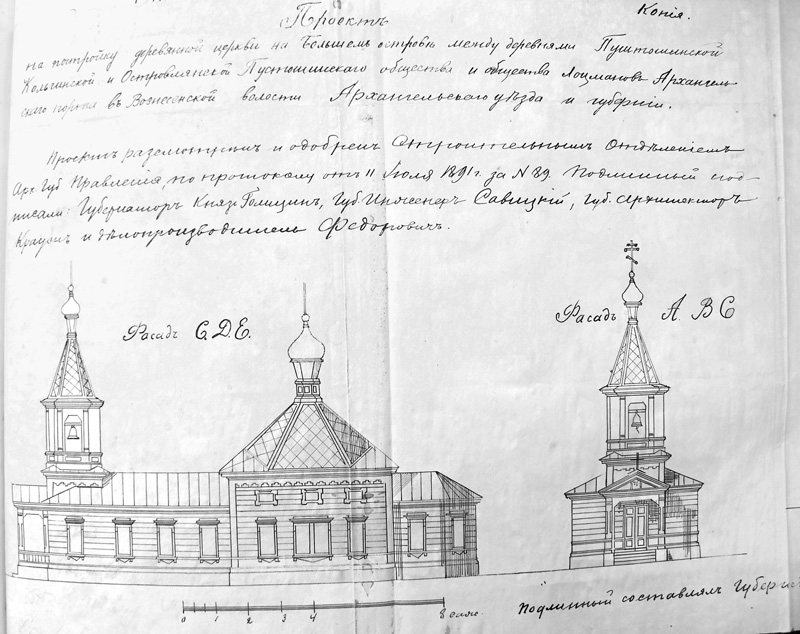 Проектъ
Копія.
на постройку деревянной церкви на Большемъ островѣ между деревнями Пуштошинской
Кальгинской и Островлянской Пустошинскаго общества и общества Лоцмановъ Архангель
скаго порта въ Вознесенской волости Архангельскаго уѣзда и губерніи.
Проектъ разсмотрѣнъ и одобренъ Строительнымъ Отдѣленіемъ
Арх. Губ. Правленія, по протоколу отъ 11 Іюля 1891 г. за № 89. Подлинный под-
писали: Губернаторъ Князь Голицынъ, Губ. Инженеръ Савицкій, Губ. Архитекторъ
и дѣлопроизводитель Федоровичъ.
Фасадъ С. D. E.
Фасадъ А В С
0 1 2 3 4 8 саж.
Подлинный составлялъ Губерн